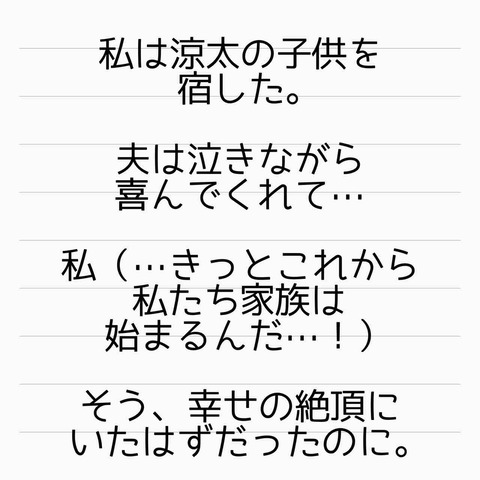 私は涼太の子供を
宿した。
夫は泣きながら
喜んでくれて…
私（…きっとこれから
私たち家族は
始まるんだ…！）
そう、幸せの絶頂に
いたはずだったのに。